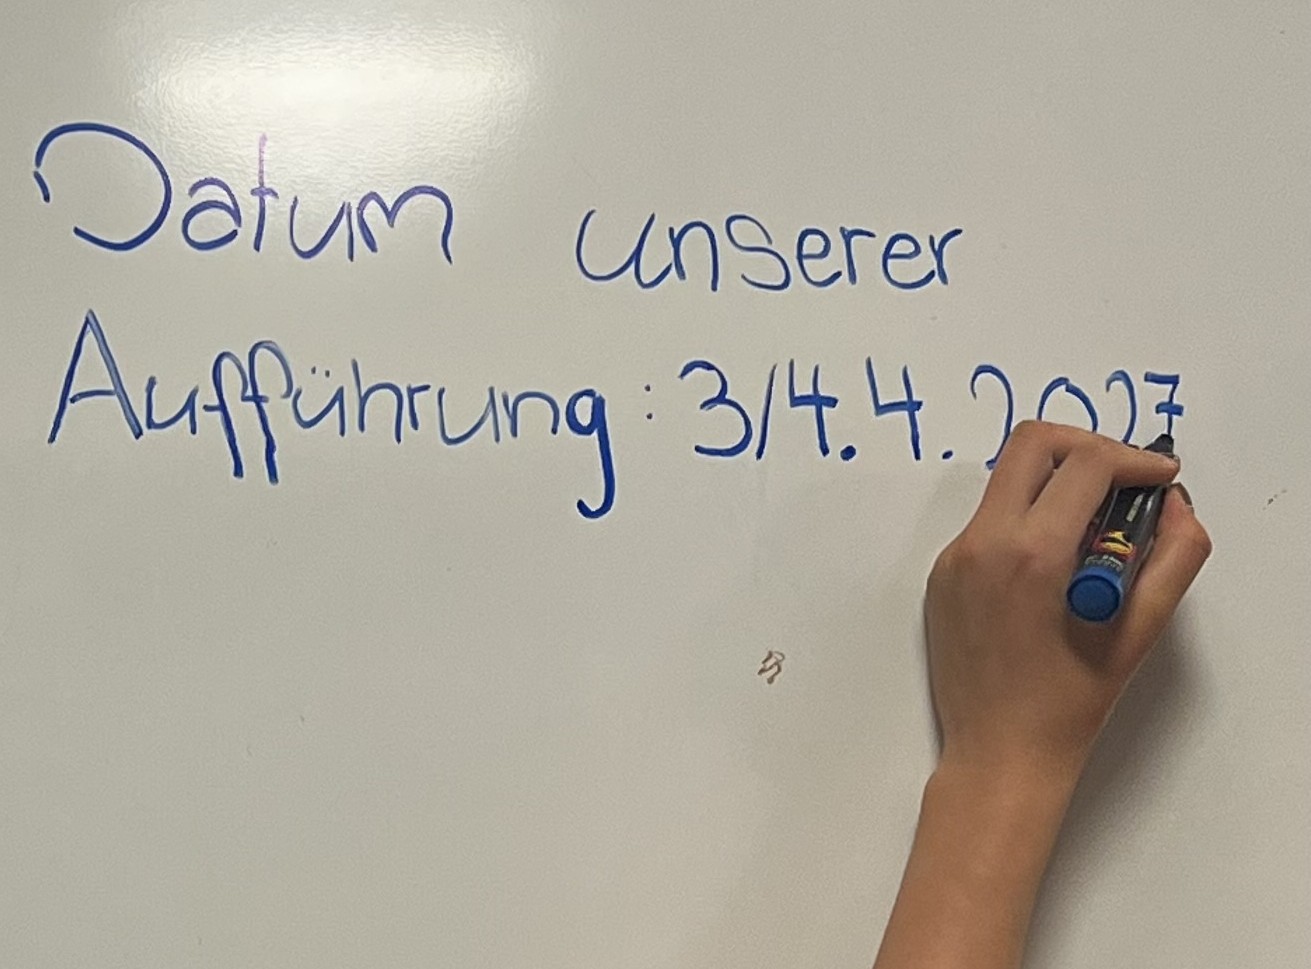 Datum unserer
Aufführung: 3/4.4.2027